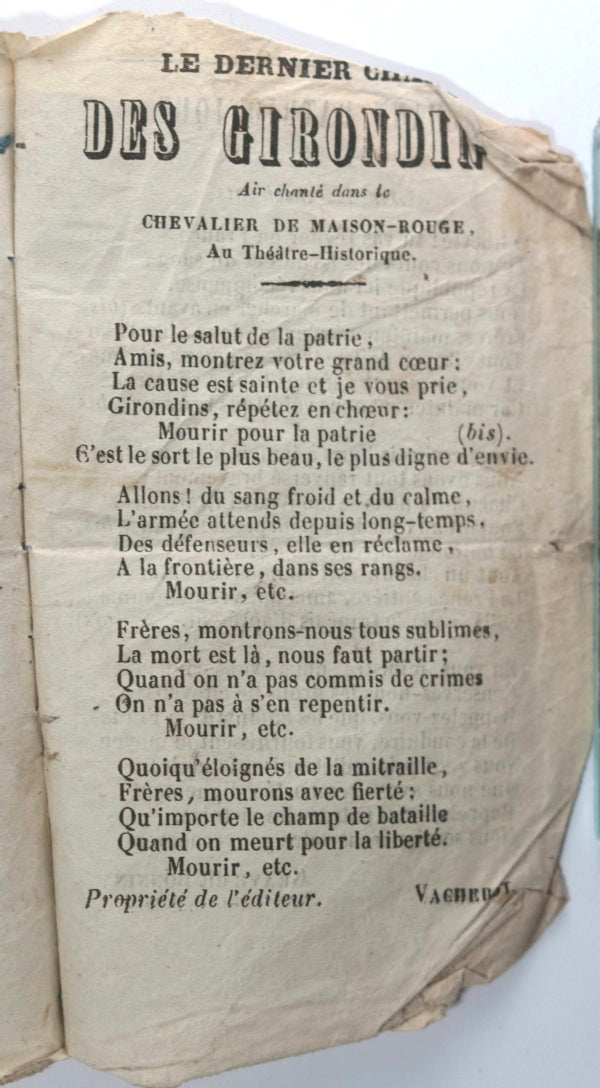 LE DERNIER
DES GIRONDIN
Air chanté dans le
CHEVALIER DE MAISON-ROUGE,
Au Théâtre-Historique.
Pour le salut de la patrie,
Amis, montrez votre grand cœur :
La cause est sainte et je vous prie,
Girondins, répétez en chœur :
Mourir pour la patrie (bis).
C'est le sort le plus beau, le plus digne d'envie.
Allons ! du sang froid et du calme,
L'armée attends depuis long-temps.
Des défenseurs, elle en réclame,
A la frontière, dans ses rangs.
Mourir, etc.
Frères, montrons-nous tous sublimes,
La mort est là, nous faut partir ;
Quand on n'a pas commis de crimes
On n'a pas à s'en repentir.
Mourir, etc.
Quoiqu'éloignés de la mitraille,
Frères, mourons avec fierté :
Qu'importe le champ de bataille
Quand on meurt pour la liberté.
Mourir, etc.
Propriété de l'éditeur.